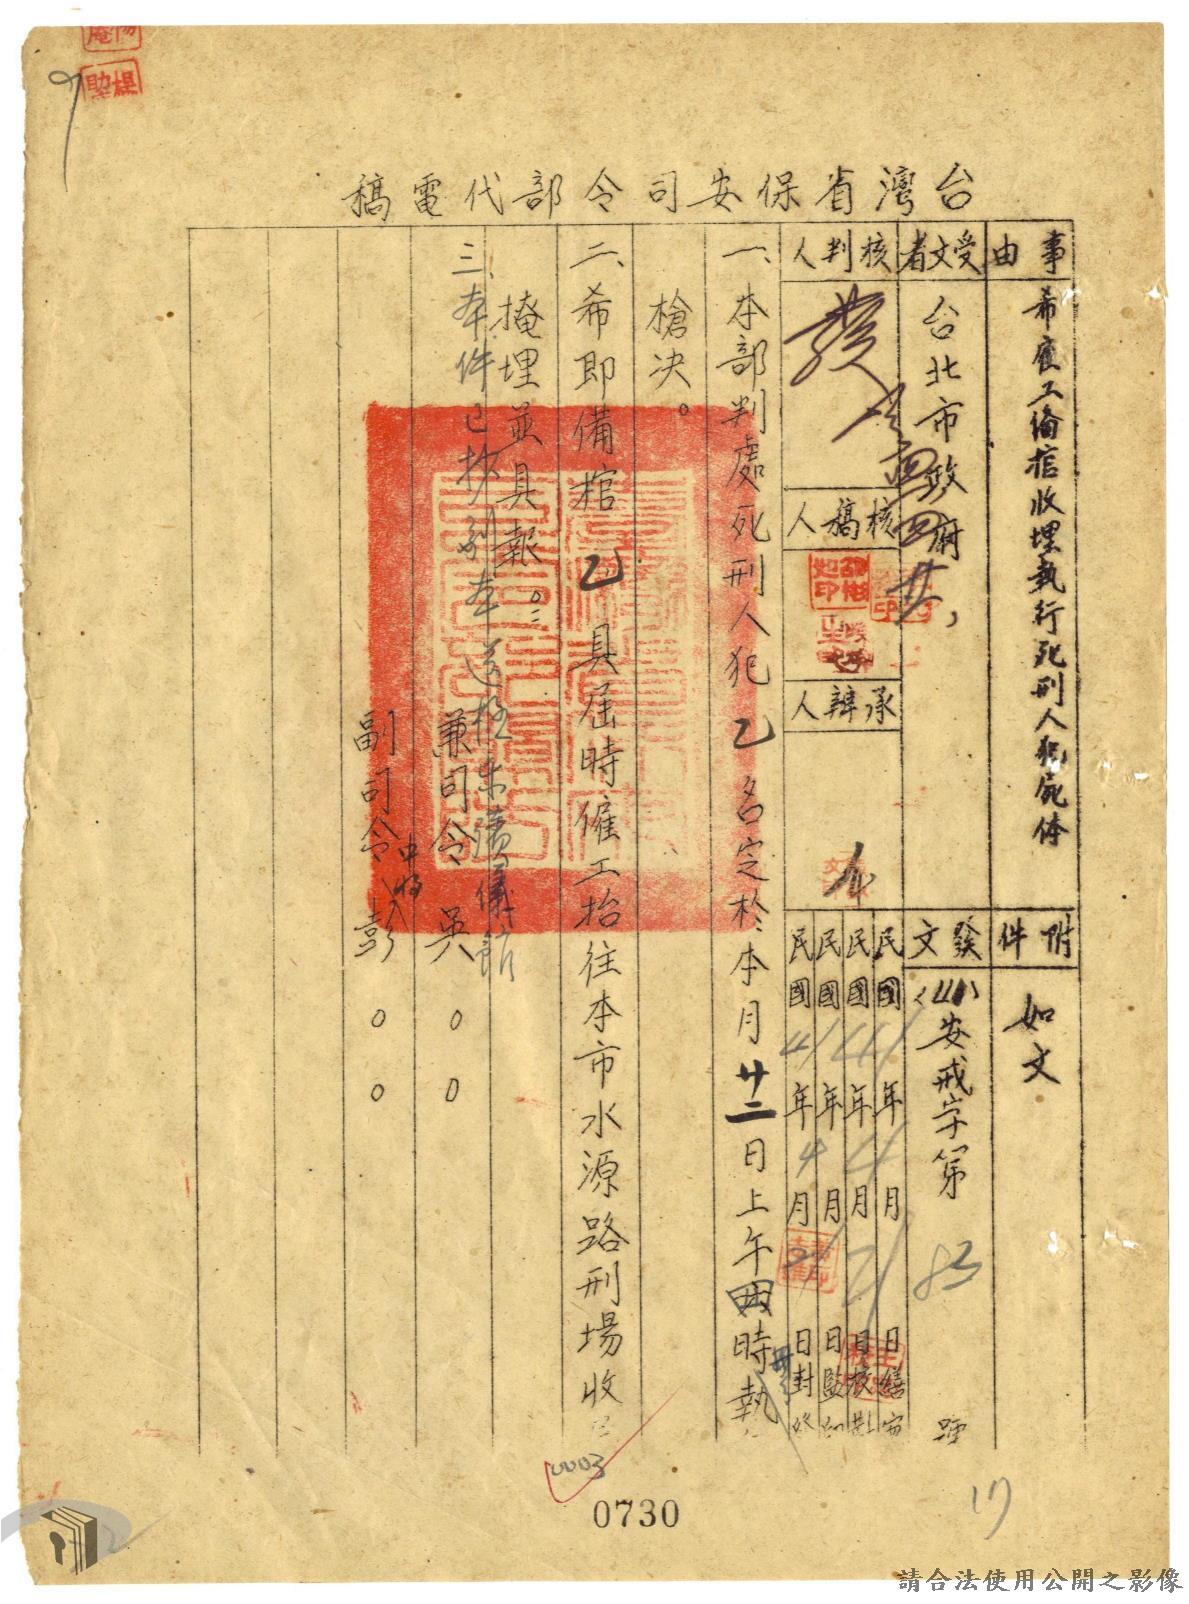 台灣省保安司令部代電稿
事由
希雇工備棺收埋執行死刑人犯屍体
附件
如文
受文者
台北市政府
發文
安戒字第 83 號
核判人
發
核稿人
承辦人
民國 年 月 日繕寫
民國41年4月21日校對
民國 年 月 日監印
民國41年4月21日封發
一、本部判處死刑人犯乙名定於本月廿二日上午四時執
槍決。
二、希即備棺乙具屆時僱工抬往本市水源路刑場收
掩埋並具報。
三、本件已抄副本送極樂殯儀館
兼司令吳○○
副司令彭○○
0003
0730
17
請合法使用公開之影像